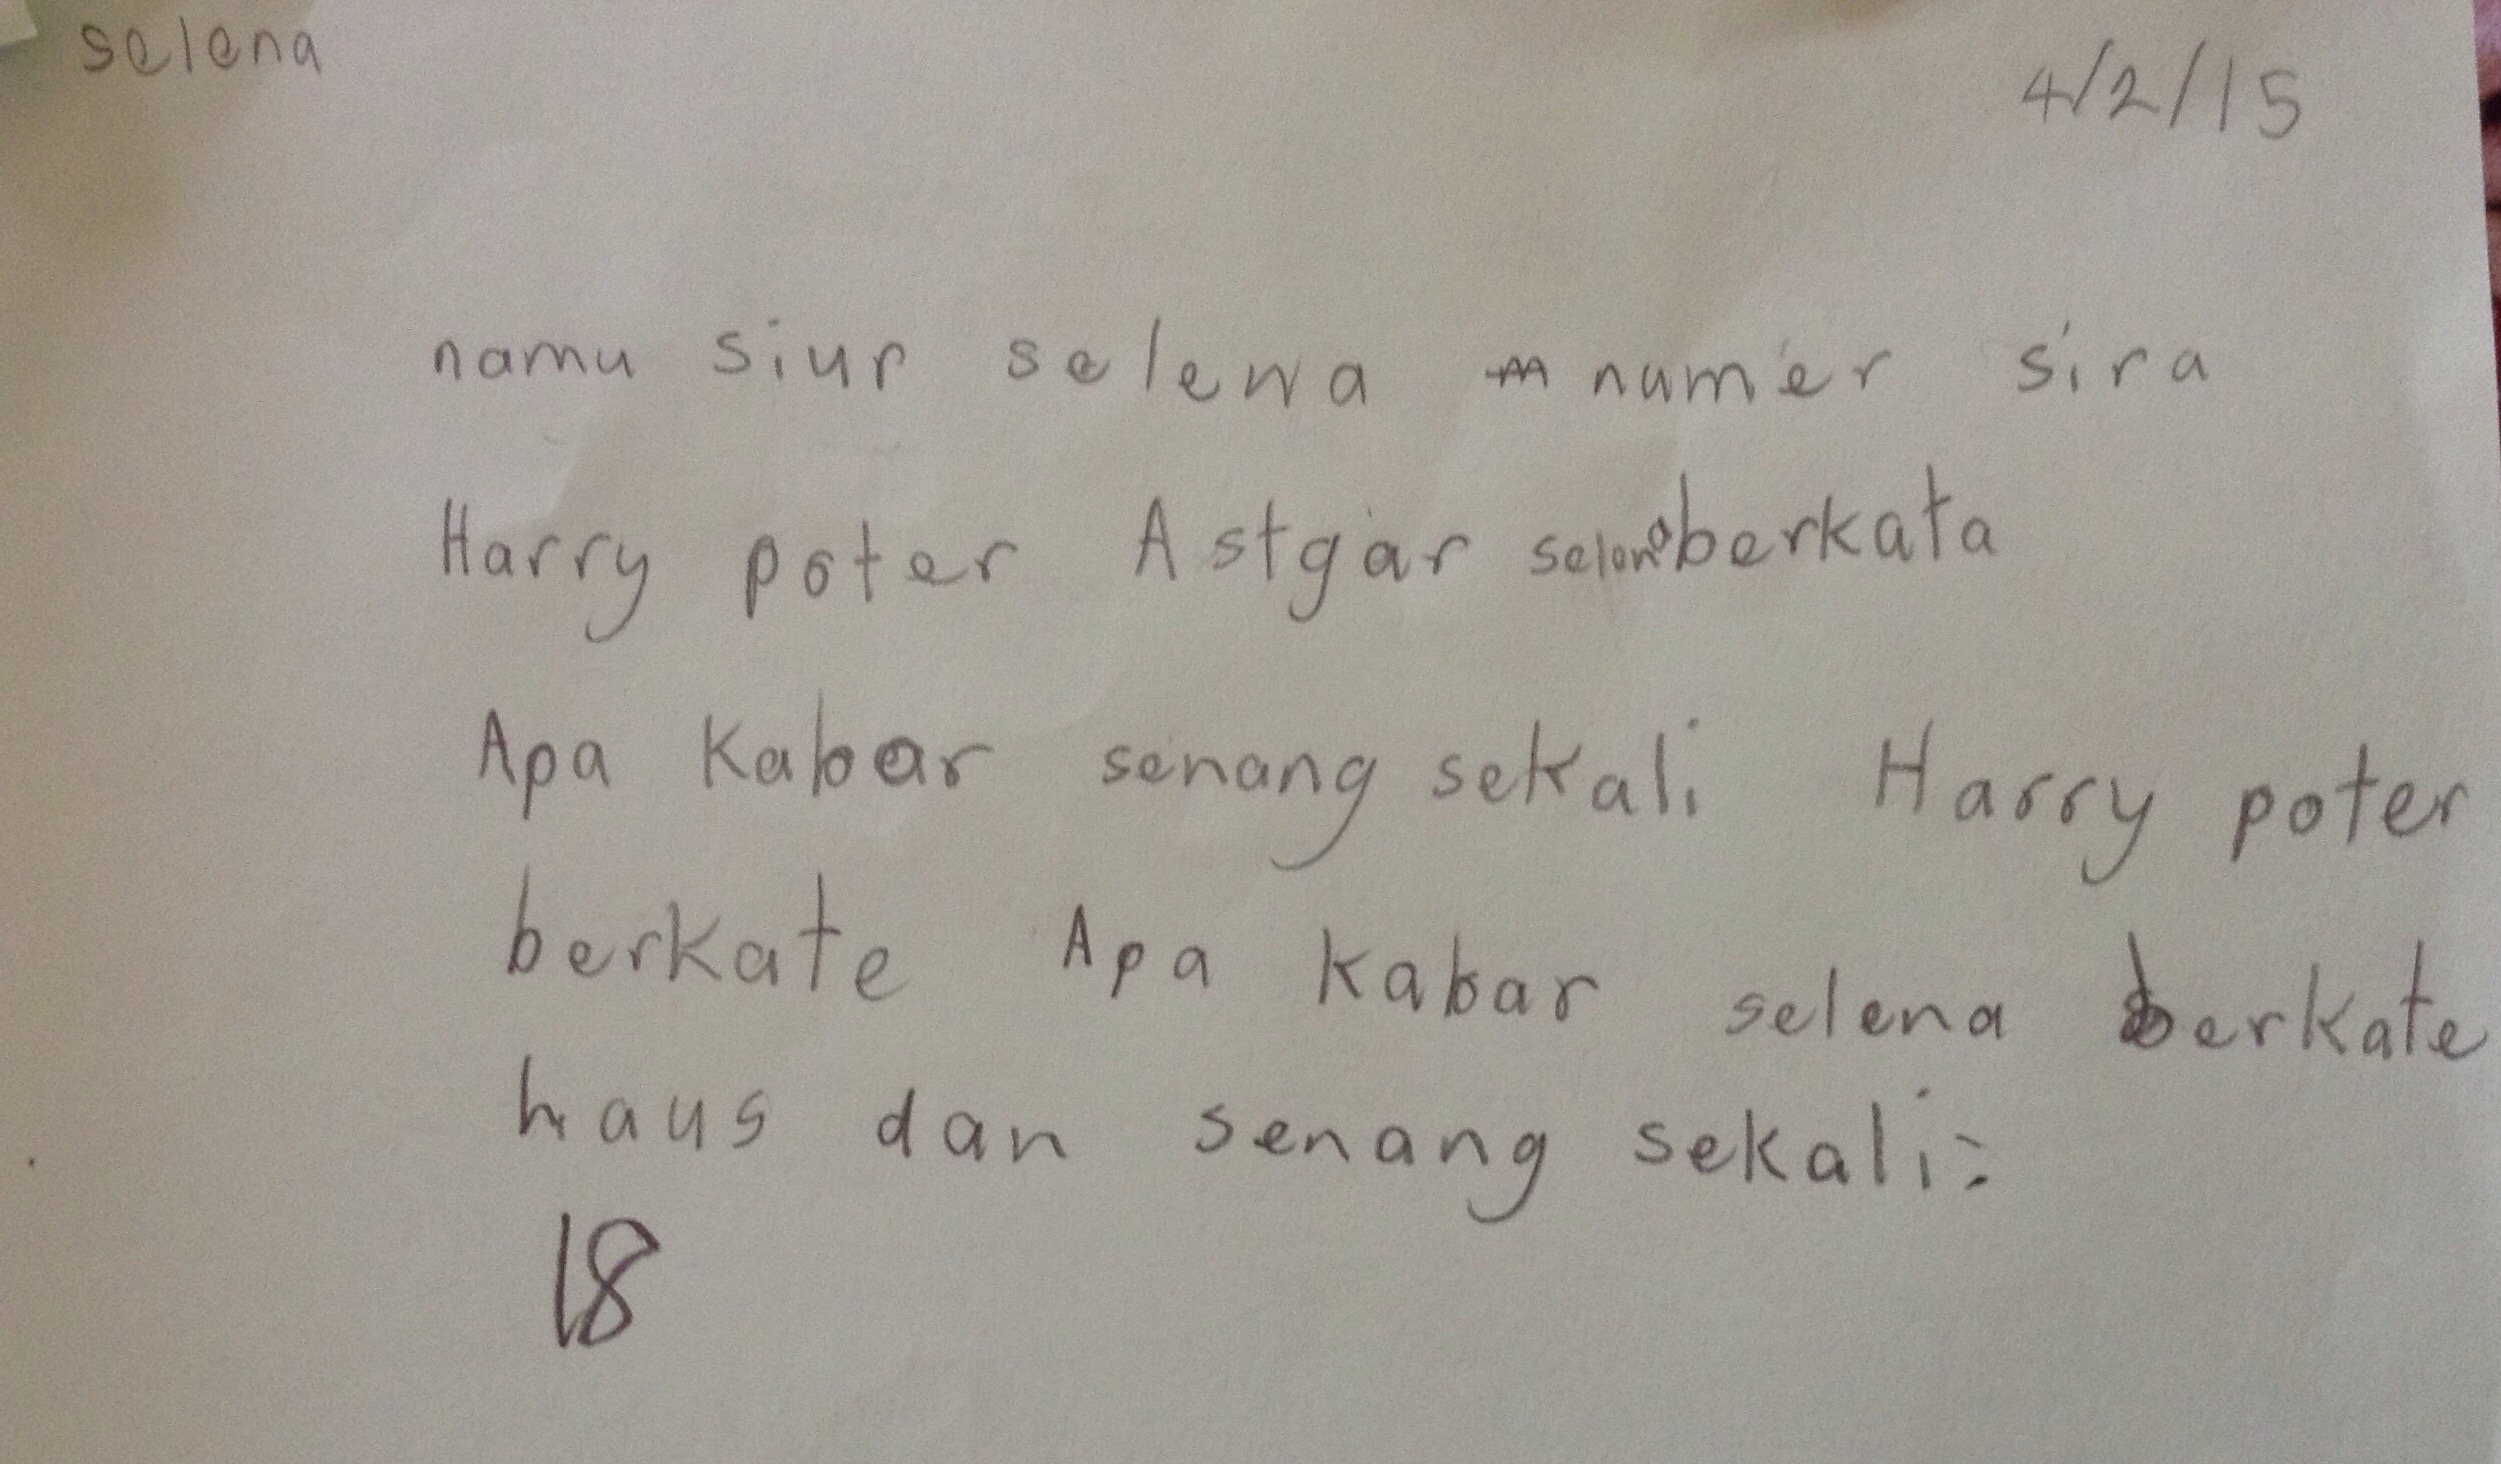 selena
4/2/15
namu siur selena numer sira
Harry poter Astgar selena berkata
Apa Kabar senang sekali Harry poter
berkate Apa kabar selena berkate
haus dan senang sekali:
18